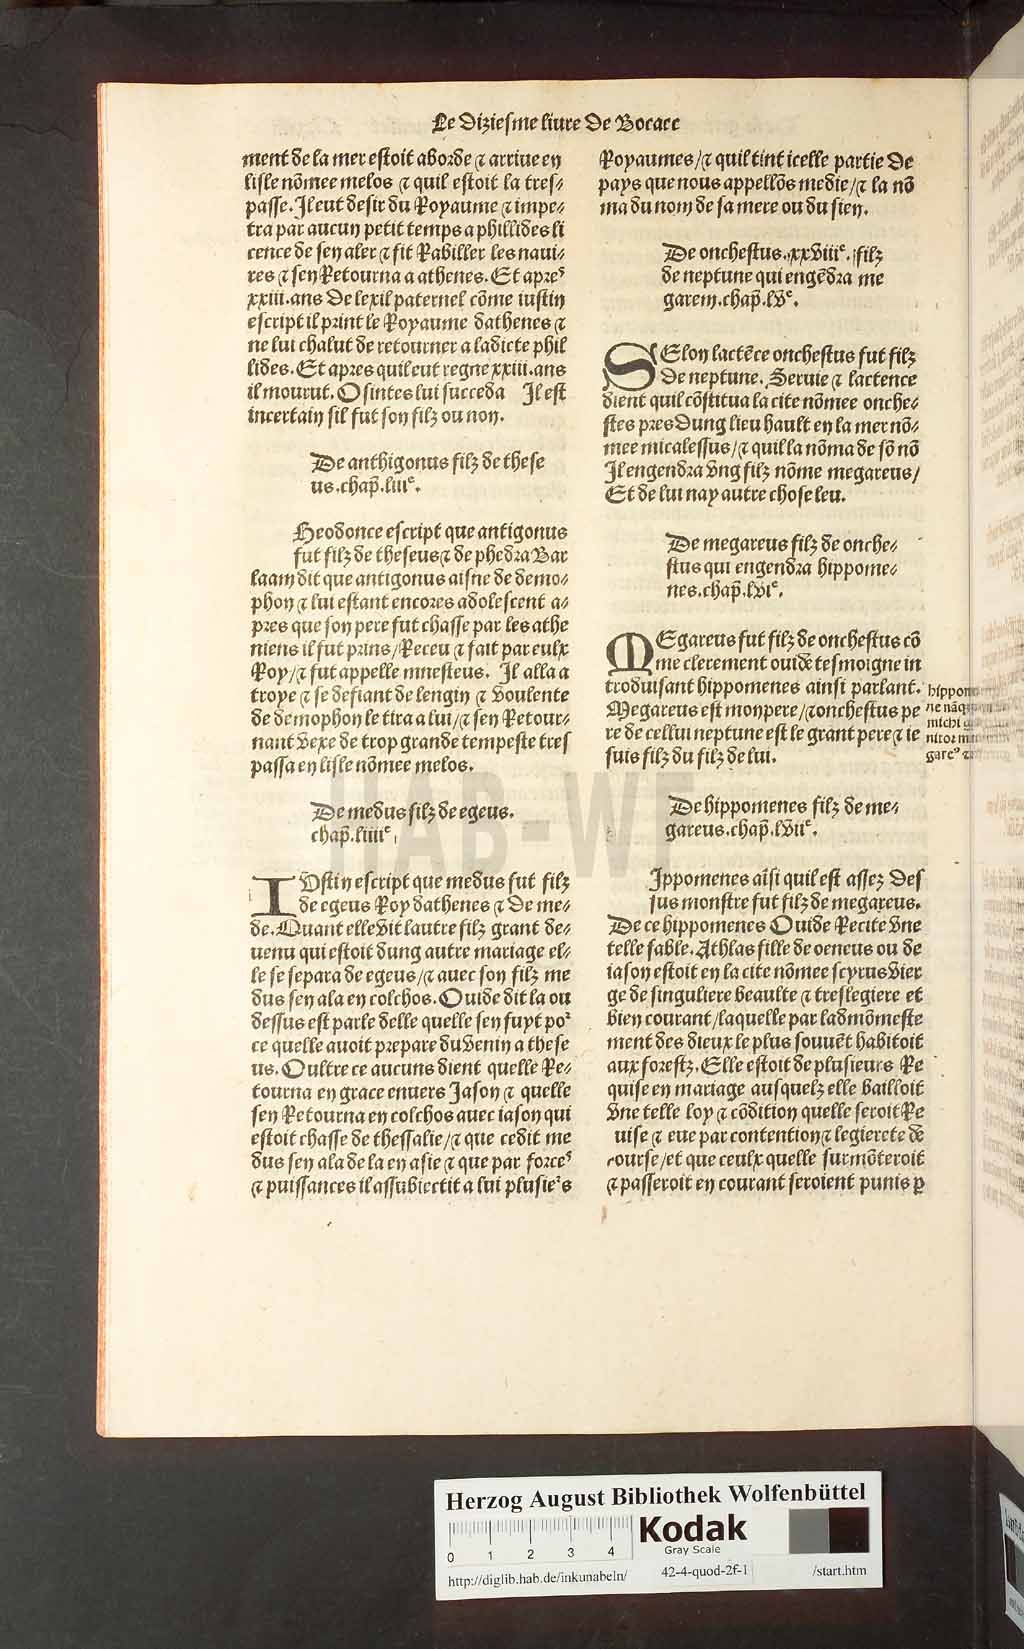 Le diziesme liure de Bocace
ment de la mer estoit aborde ⁊ arriue en
lisle nõmee melos ⁊ quil estoit la tres⸗
passe. Il eut desir du Royaume ⁊ impe⸗
tra par aucun petit temps a phillides li
cence de sen aler ⁊ fit Rabiller les naui⸗
res ⁊ sen Retourna a athenes. Et apreˢ
xxiii. ans de lexil paternel cõme iustin
escript il print le Royaume dathenes ⁊
ne lui chalut de retourner a ladicte phil
lides. Et apres quil eut regne xxiii. ans
il mourut. Osintes lui succeda Il est
incertain sil fut son filz ou non.
De anthigonus filz de these
us. chap̃. liiiᵉ.
Heodonce escript que antigonus
fut filz de theseus ⁊ de phedra Bar
laam dit que antigonus aisne de demo⸗
phon ⁊ lui estant encores adolescent a⸗
pres que son pere fut chasse par les athe
niens il fut prins/Receu ⁊ fait par eulx
Roy/⁊ fut appelle mnesteus. Il alla a
troye ⁊ se defiant de lengin ⁊ voulente
de demophon le tira a lui/⁊ sen Retour⸗
nant vexe de trop grande tempeste tres
passa en lisle nõmee melos.
De medus filz de egeus.
chap̃. liiiiᵉ.
IVstin escript que medus fut filz
de egeus Roy dathenes ⁊ de me⸗
de. Quant elle vit lautre filz grant de⸗
uenu qui estoit dung autre mariage el⸗
le se separa de egeus/⁊ auec son filz me
dus sen ala en colchos. Ouide dit la ou
dessus est parle delle quelle sen fuyt poᷣ
ce quelle auoit prepare du venin a these
us. Oultre ce aucuns dient quelle Re⸗
tourna en grace enuers Jason ⁊ quelle
sen Retourna en colchos auec iason qui
estoit chasse de thessalie/⁊ que cedit me
dus sen ala de la en asie ⁊ que par forceˢ
⁊ puissances il assubiectit a lui plusieᷣs
Royaumes/⁊ quil tint icelle partie de
pays que nous appellõs medie/⁊ la nõ
ma du nom de sa mere ou du sien.
De onchestus. xxviiiᵉ. filz
de neptune qui engẽdra me
garem. chap̃. lvᵉ.
SElon lactẽce onchestus fut filz
de neptune. Seruie ⁊ lactence
dient quil cõstitua la cite nõmee onche⸗
stes pres dung lieu hault en la mer nõ⸗
mee micalessus/⁊ quil la nõma de sõ nõ
Il engendra vng filz nõme megareus/
Et de lui nay autre chose leu.
De megareus filz de onche⸗
stus qui engendra hippome⸗
nes. chap̃. lviᵉ.
MEgareus fut filz de onchestus cõ
me clerement ouide tesmoigne in
troduisant hippomenes ainsi parlant.
Megareus est mon pere/⁊ onchestus pe
re de cellui neptune est le grant pere ⁊ ie
suis filz du filz de lui.
hippom
ne nãq
michi
nitor m
gareꝰ
De hippomenes filz de me⸗
gareus. chap̃. lviiᵉ.
Ippomenes aĩsi quil est assez des
sus monstre fut filz de megareus.
De ce hippomenes Ouide Recite vne
telle fable. Athlas fille de oeneus ou de
iason estoit en la cite nõmee scyrus vier
ge de singuliere beaulte ⁊ treslegiere et
bien courant/laquelle par ladmõneste
ment des dieux le plus souuẽt habitoit
aux forestz. Elle estoit de plusieurs Re
quise en mariage ausquelz elle bailloit
vne telle loy ⁊ cõdition quelle seroit Re
uise ⁊ eue par contention ⁊ legierete de
course/et que ceulx quelle surmõteroit
⁊ passeroit en courant seroient punis ꝑ
HAB-WF
Herzog August Bibliothek Wolfenbüttel
0 1 2 3 4
Kodak
Gray Scale
http://diglib.hab.de/inkunabeln/ 42-4-quod-2f-1 /start.htm